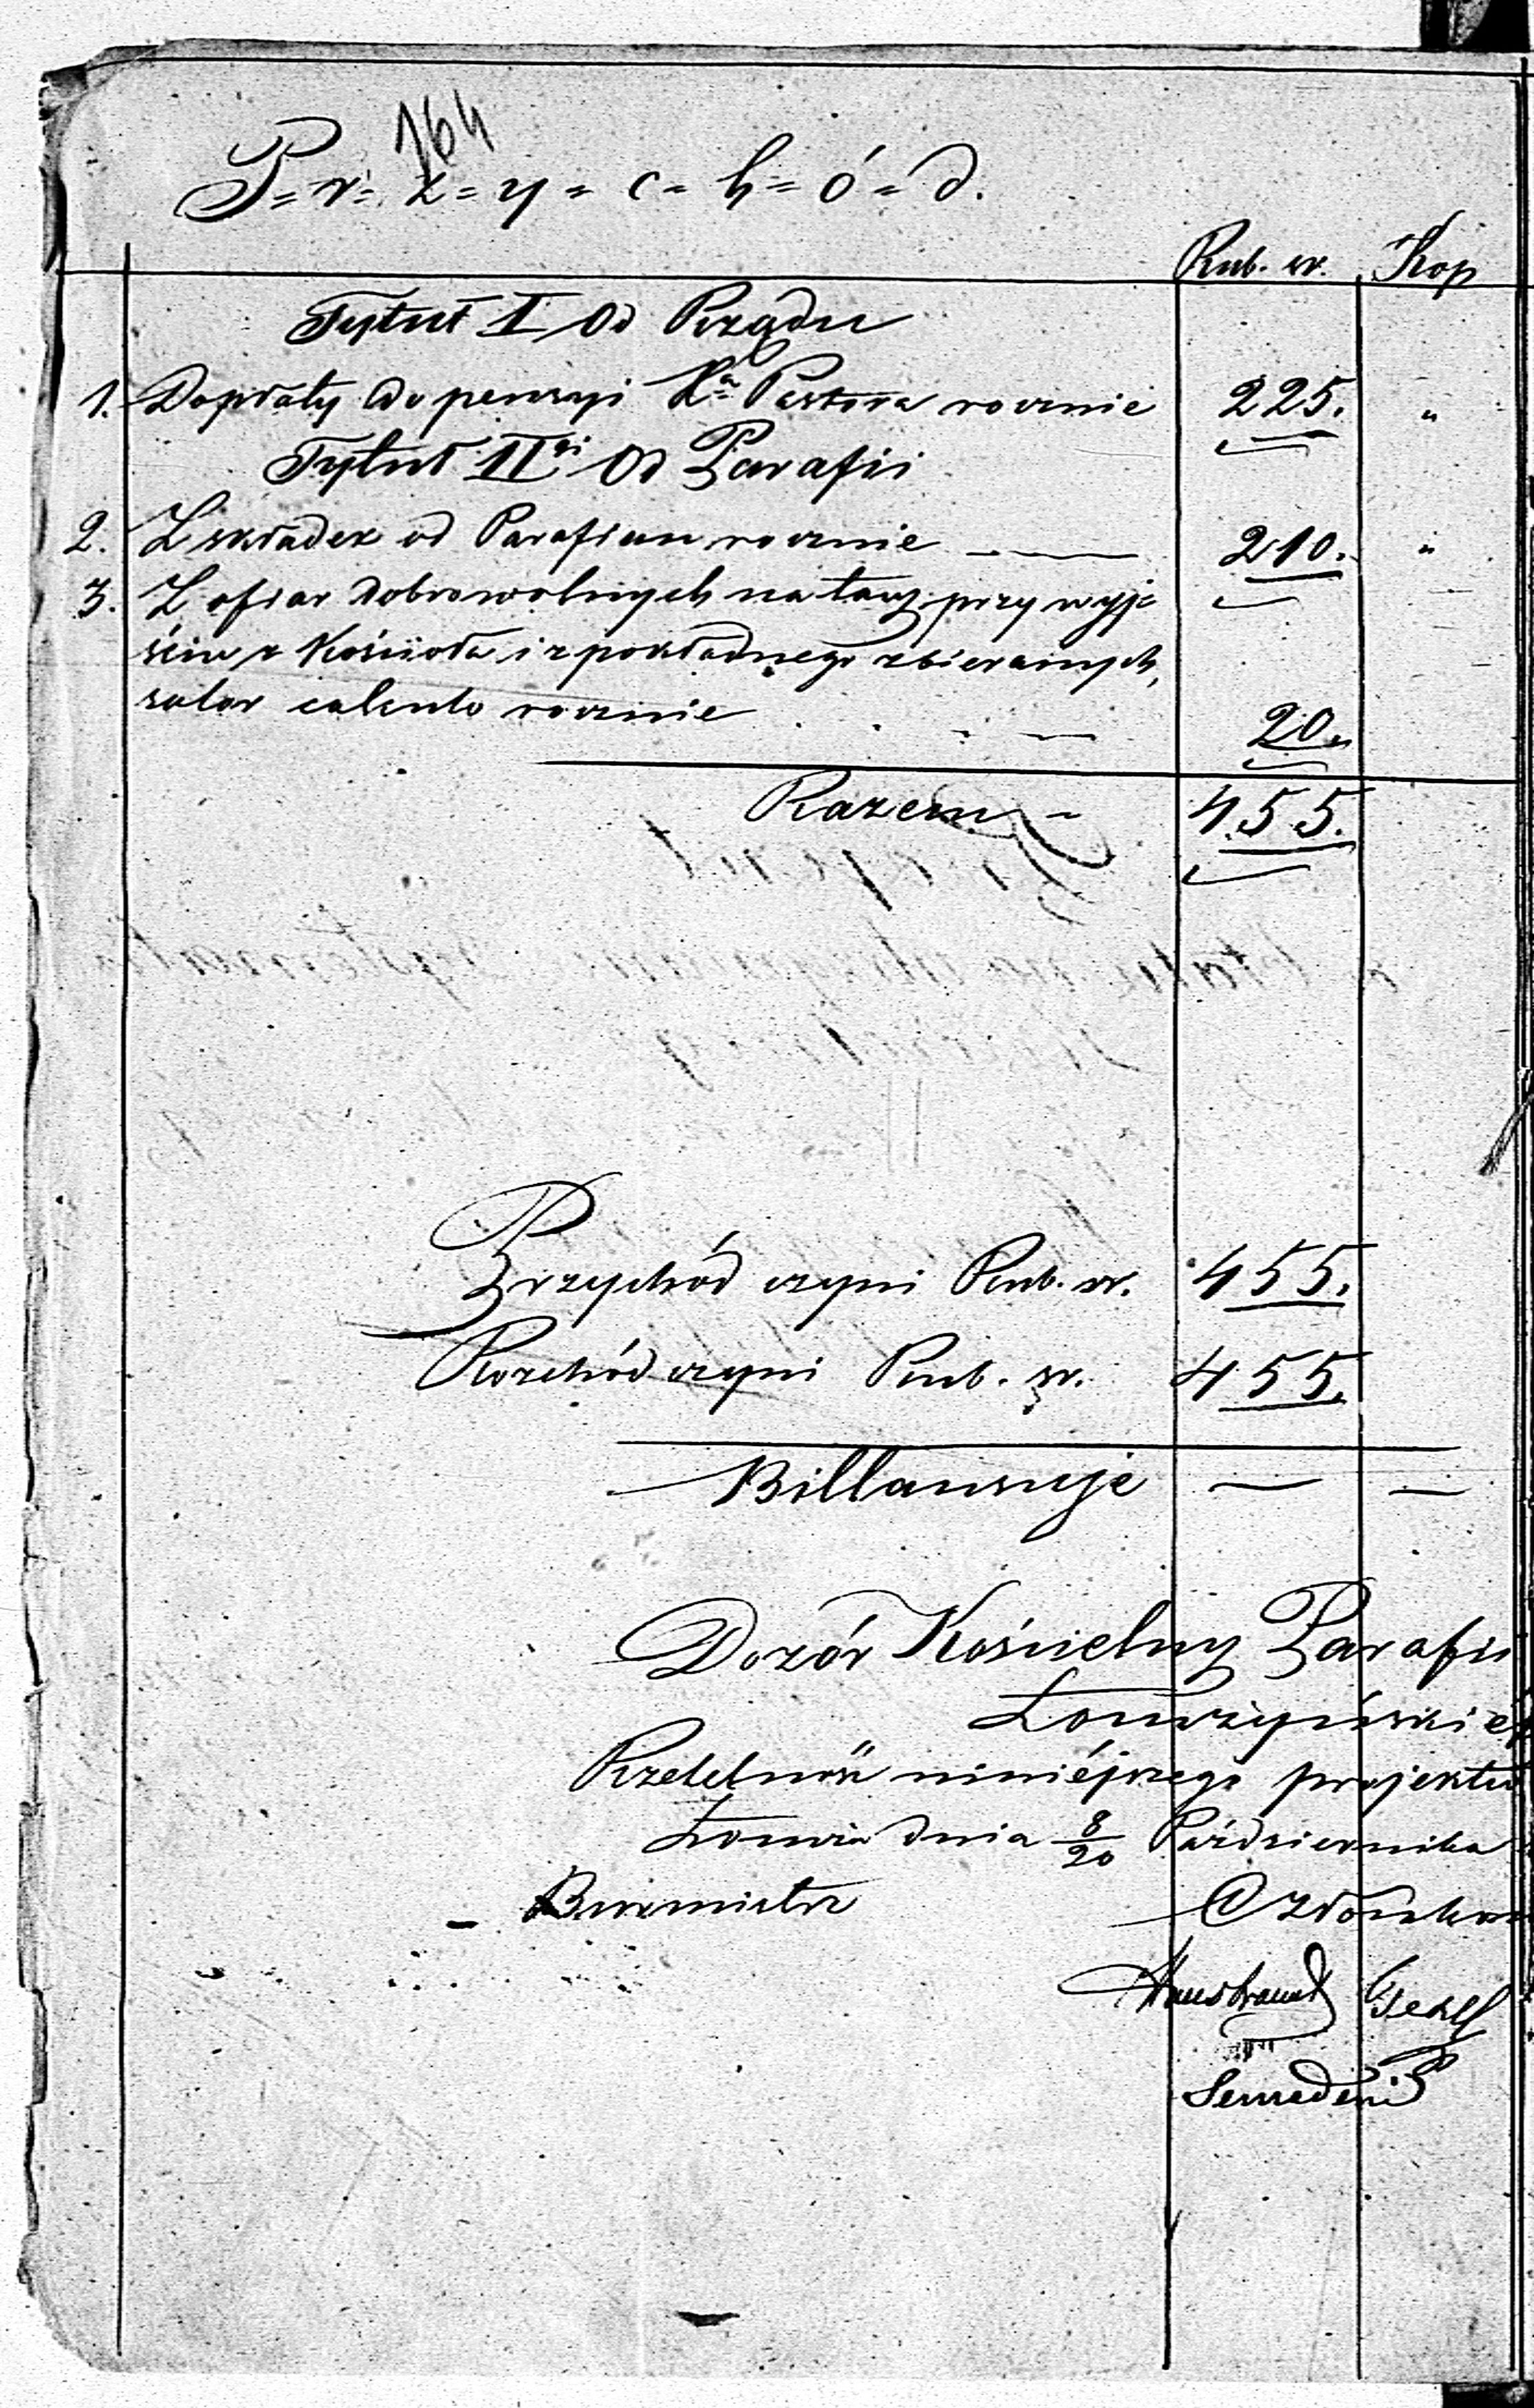 164
P=r=z=y=c=h=ó=d.
Rub. sr. Kop
Tytuł I Od Rządu
1. Dopłaty do pensyi Xa Pastora rocznie 225. "
Tytuł IIgi Od Parafii
2. Z składek od Parafian rocznie 210. "
3. Z ofiar dobrowolnych na tacę przy wyj=
ściu z Kościoła i z pokładnego zbieranych,
rocznie 20.
Razem - 455.
Przychód czyni Rub. sr. 455.
Rozchód czyni Rub. sr. 455.
Billansuje — —
Dozór Kościelny Parafii
Łomżyńskiéj
Rzetelność niniéjszego projektu
Łomża dnia 8/20 Października
Burmistrz Członkow
Hausbrandt
Semadeni